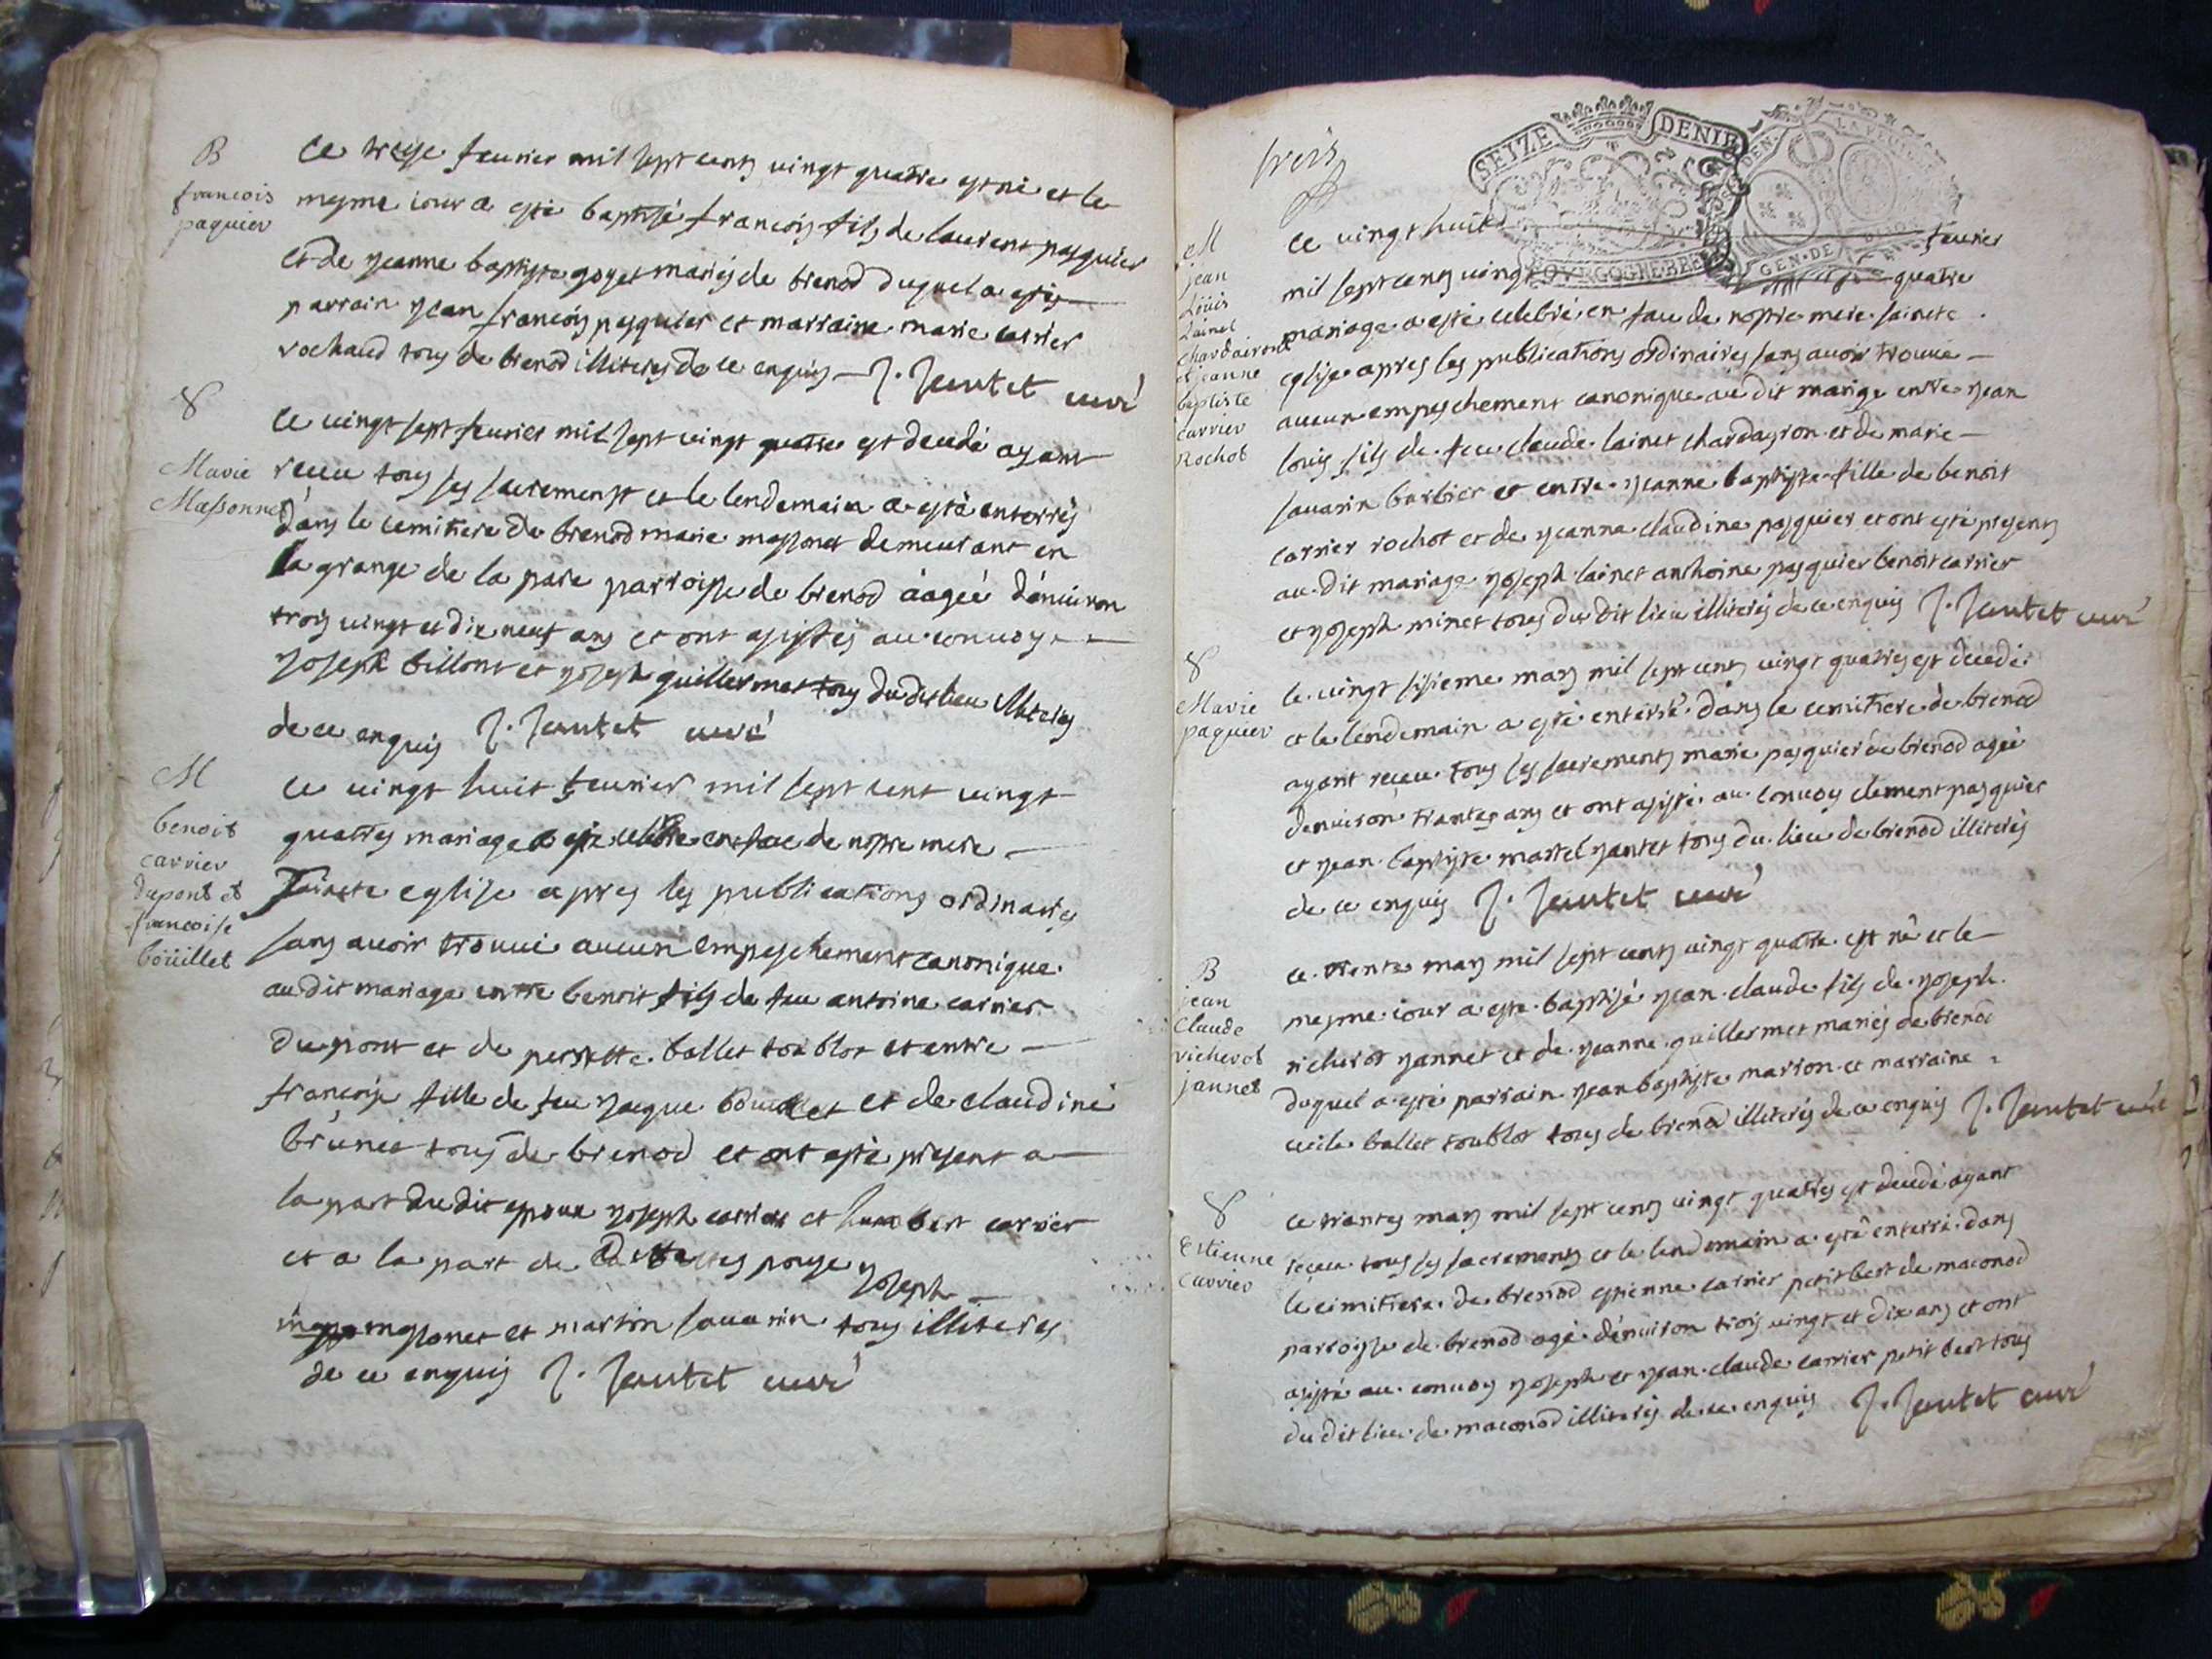 B
francois
paquier
ce treise feurier mil sept cents vingt quatre est né et le
mesme iour a esté baptisé françois fils de laurent pasquier
et de yeanne baptiste goyet mariés de brenod duquel a esté
parrain yean françois pasquier et marraine marie carrier
rochaud tous de brenod illiterés de ce enquis J. Jantet curé
Marie
Massonnet
ce vingt sept feurier mil sept vingt quatre est decedé ayant
receu tous ses sacrements et le lendemain a esté enterrés
dans le cemitiere de brenod marie massonet demeurant en
la grange de la pare parroisse de brenod áagée d'enuiron
trois vingt et dix neuf ans et ont assistés au conuoy
yoseph billont et yoseph guillermet tous du dit lieu illiterés
de ce enquis J. Jantet curé
M
benoit
carrier
dupont et
francoise
boüillet
ce vingt huit feurier mil sept cent vingt
quatres mariage a esté celebré en face de nostre mere
saincte eglise apres les publications ordinaires
sans auoir trouué aucun empeschement canonique
au dit mariage entre benoit fils de feu antoine carrier
du pont et de pernette ballet toublot et entre
françoise fille de feu yacque bouillet et de claudine
brunet tous de brenod et ont esté present a
la part du dit epoux yoseph carrier et humbert carrier
et a la part de la ditte espouse yoseph
massonet et martin sauarin tous illiteres
de ce enquis J. Jantet curé
trois
SEIZE DENIE
GEN. DE
M
jean
Loüis
Lainet
chardairon
et jeanne
baptiste
carrier
Rochot
ce vingt huit feurier
mil sept cents vingt quatre
mariage a esté celebré en face de nostre mere saincte
eglise apres les publications ordinaires sans auoir trouué
aucun empeschement canonique au dit mariage entre yean
louis fils de feu claude lainet chardayron et de marie
sauarin barbier et entre yeanne baptiste fille de benoit
carrier rochot et de yeanne claudine pasquier et ont esté presents
au dit mariage yoseph lainet anthoine pasquier benoit carrier
et yoseph minet tous du dit lieu illiterés de ce enquis J. Jantet curé
Marie
paquier
le vingt sisieme mars mil sept cents vingt quatres est decedé
et le lendemain a esté enterré dans le cemitiere de brenod
ayant receu tous ses sacrements marie pasquier de brenod agée
denuiron trantes ans et ont assisté au conuoy clement pasquier
et yean baptiste martel yantet tous du lieu de brenod illiterés
de ce enquis J. Jantet curé
B
jean
Claude
richerot
jannet
ce trente mars mil sept cents vingt quatre est né et le
mesme iour a esté baptisé yean claude fils de yoseph
richerot yannet et de yeanne guillermet mariés de brenod
duquel a esté parrain yean baptiste marron et marraine
cecile ballet toublot tous de brenod illiterés de ce enquis J. Jantet curé
Estienne
carrier
ce trantes mars mil sept cents vingt quatres est decedé ayant
receu tous ses sacrements et le lendemain a esté enterré dans
le cimitiere de brenod estienne carrier petit bert de maconod
parroisse de brenod agé d'enuiron trois vingt et dix ans et ont
assisté au conuoy yoseph et yean claude carrier petit bert tous
du dit lieu de maconod illiterés de ce enquis J. Jantet curé